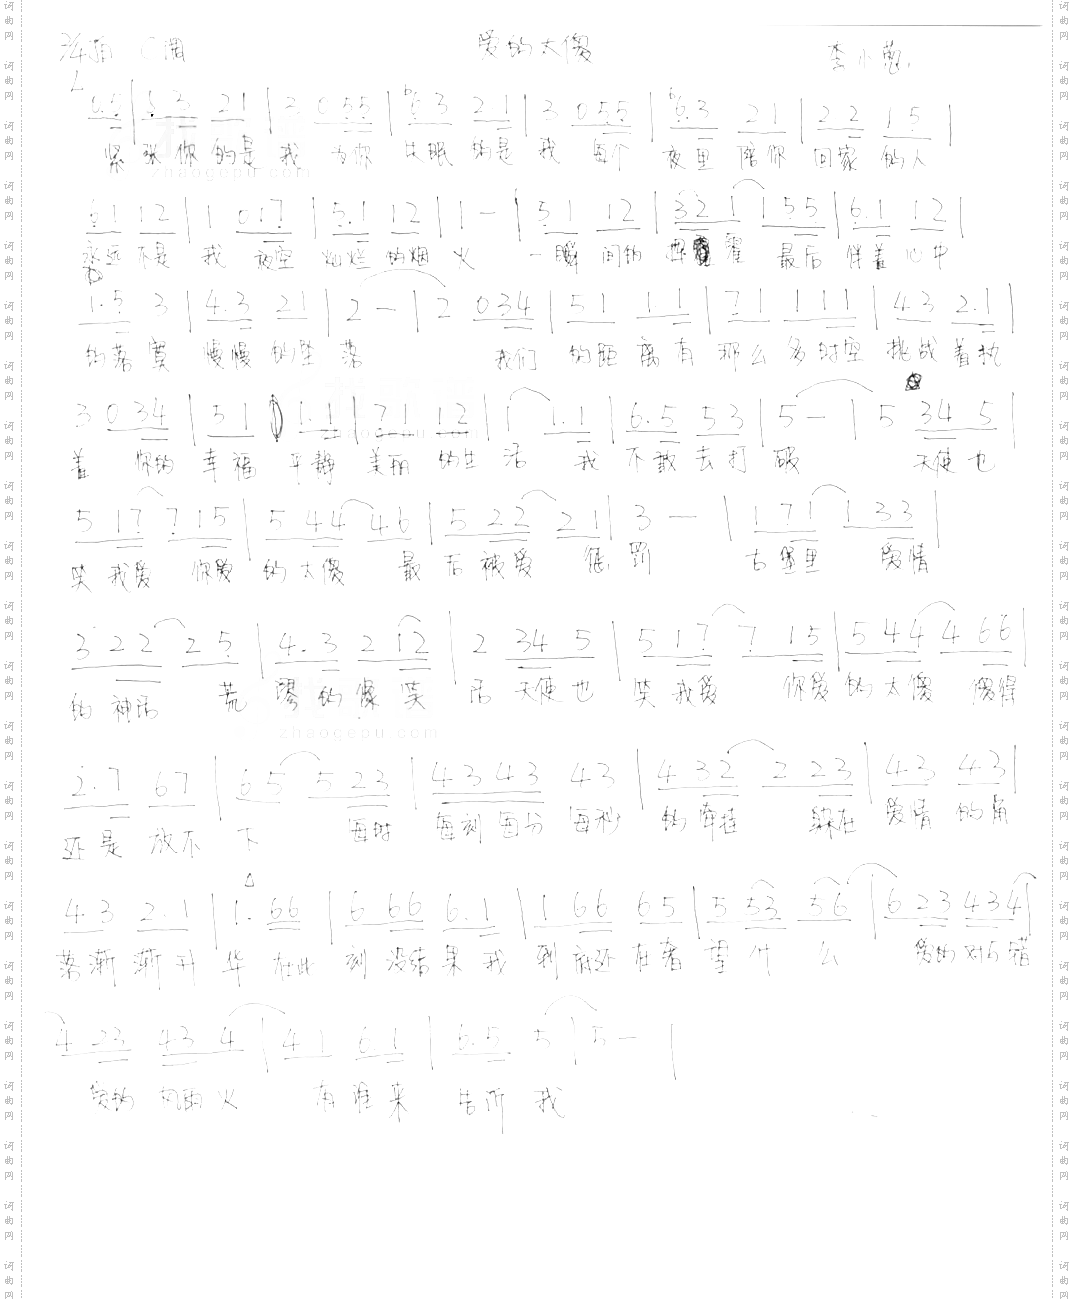 2/4拍 C调 爱的太傻 李小勉
0.5 | 6.3 21 | 2 0 55 | b6.3 2.1 | 3 0.55 | b6.3 21 | 22 15 |
紧 张你 的是 我 为你 失眠 的是 我 每个 夜里 陪你 回家 的人
61 12 | 1 017 | 5.1 12 | 1 — | 51 12 | 32 1 | 1 55 | 6.1 12 |
永远 不是 我 夜空 灿烂 的烟 火 一瞬 间的 耀 最后 伴着 心中
1.5 3 | 4.3 21 | 2 — | 2 034 | 51 1.1 | 71 111 | 4.3 2.1 |
的落 寞 慢慢 的坠 落 我们 的距 离有 那么 多时空 挑战 着执
3 0 34 | 51 1.1 | 71 12 | 1 1.1 | 6.5 53 | 5 — | 5 34 5 |
着 你的 幸福 平静 美丽 的生 活 我 不敢 去打 破 天使 也
5 17 7 15 | 5 44 46 | 5 22 21 | 3 — | 1 71 1 33 |
笑 我爱 你爱 的 太傻 最 后 被爱 惩 罚 古 堡里 爱情
3 22 25 | 4.3 2 12 | 2 34 5 | 5 17 7 15 | 5 44 4 66 |
的 神话 荒 谬 的 像 笑 话 天使 也 笑 我爱 你爱 的 太傻 傻得
2.7 67 | 65 5 23 | 4343 43 | 4 32 2 23 | 43 43 |
还是 放不 下 每时 每刻 每分 每秒 的 牵挂 躲在 爱情 的角
4.3 2.1 | 1. 66 | 6 66 6.1 | 1 66 65 | 5 53 56 | 6 23 434 |
落渐 渐升 华 在此 刻 没结 果 我 到 底还 在奢 望 什 么 爱的 对与错
4 23 43 4 | 41 6.1 | 6.5 5 | 5 — |
爱的 风雨 火 有谁来 告诉 我
zhaogepu.com
zhaogepu.com
词曲网